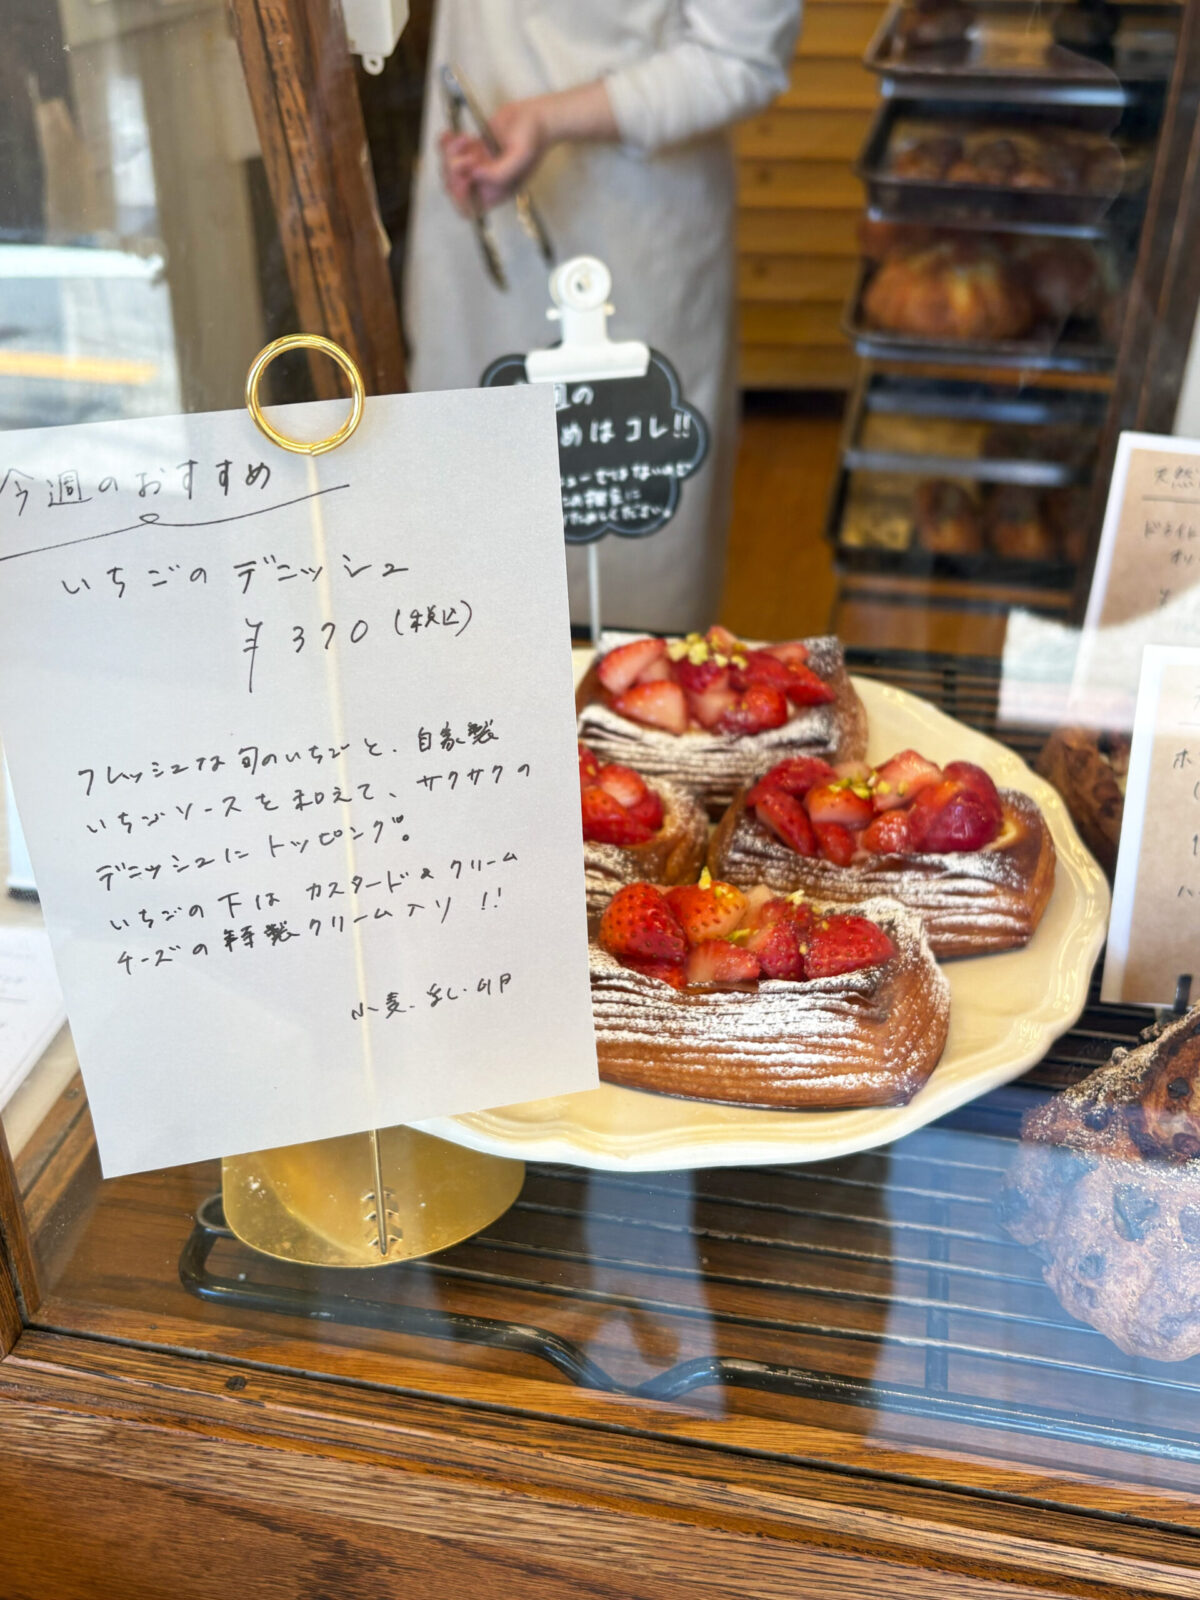 今週のおすすめ
いちごのデニッシュ
¥370(税込)
フレッシュな旬のいちごと、自家製
いちごソースを和えて、サクサクの
デニッシュにトッピング。
いちごの下はカスタード&クリーム
チーズの特製クリーム入り!!
小麦・乳・卵
週の
めはコレ!!
ください。
天然
ドライ
オリ
¥
ホ
ハ